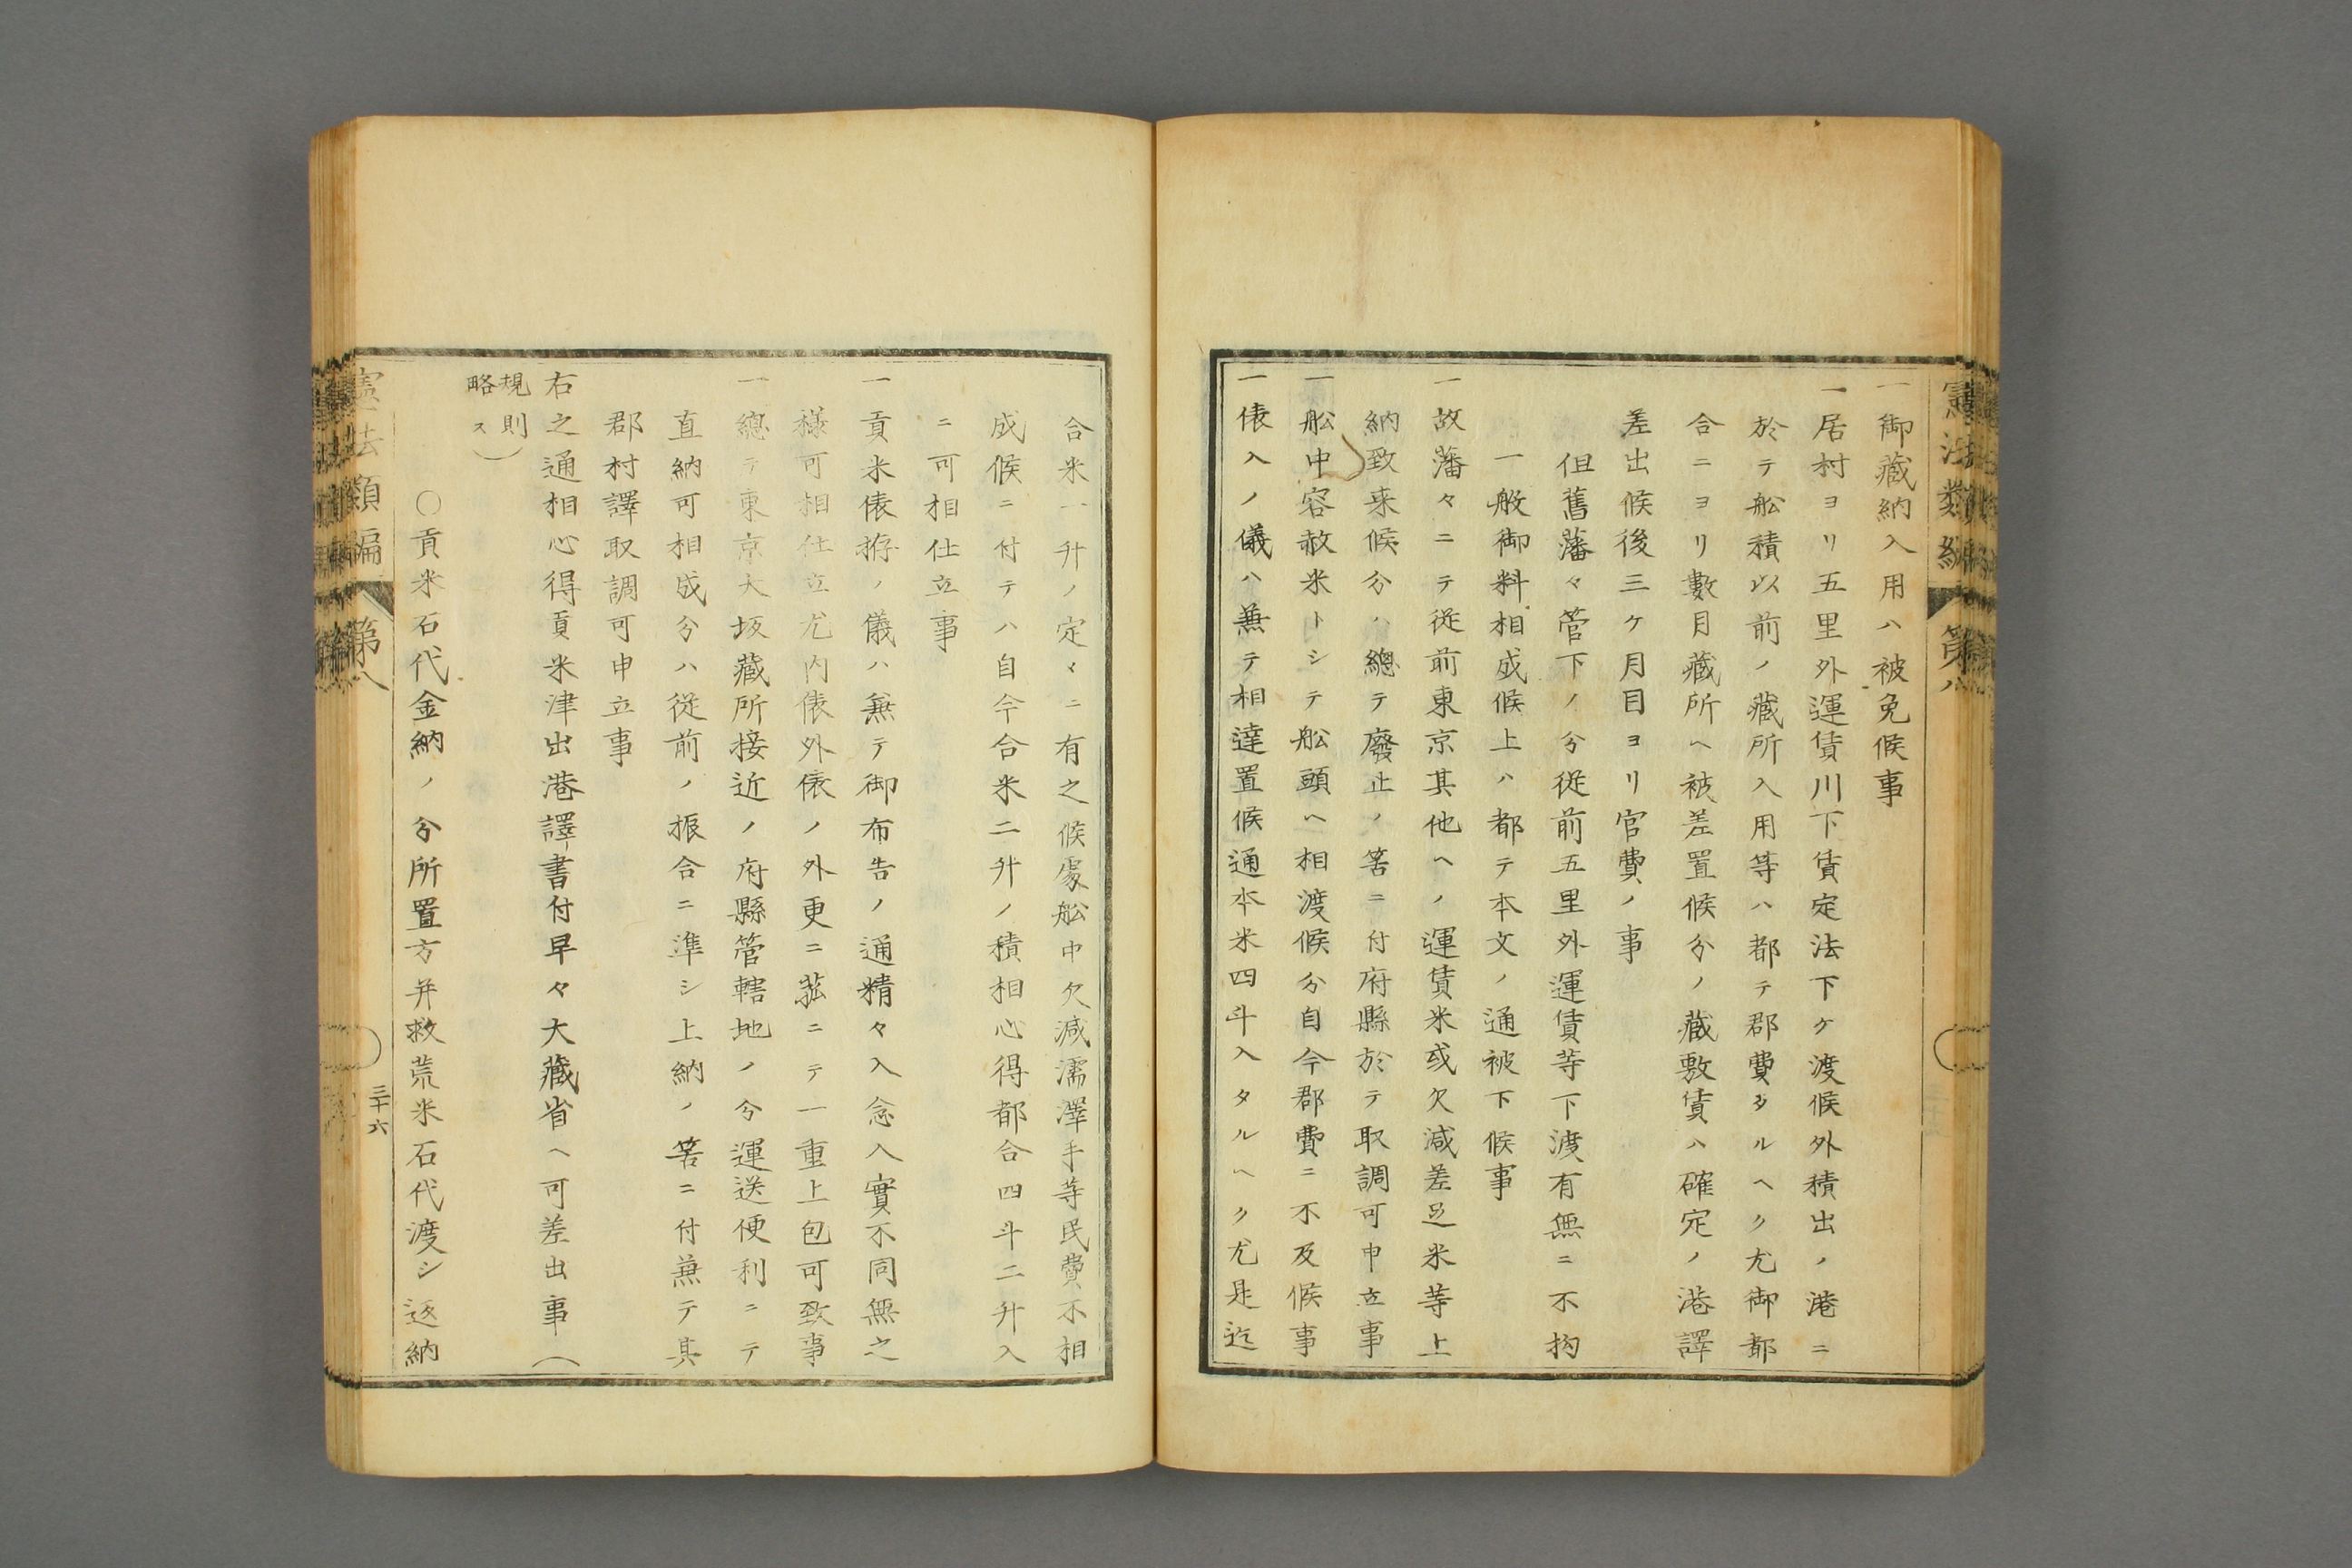 憲法類編 第八
一御藏納入用ハ被免候事
一居村ヨリ五里外運賃川下賃定法下ケ渡候外積出ノ港ニ
於テ舩積以前ノ藏所入用等ハ都テ郡費タルヘク尤御都
合ニヨリ數月藏所ヘ被差置候分ノ藏敷賃ハ確定ノ港譯
差出候後三ケ月目ヨリ官費ノ事
但舊藩々管下ノ分從前五里外運賃等下渡有無ニ不拘
一般御料相成候上ハ都テ本文ノ通被下候事
一故藩々ニテ從前東京其他ヘノ運賃米或欠減差足米等上
納致来候分ハ總テ廢止ノ筈ニ付府縣於テ取調可申立事
一舩中容赦米トシテ舩頭ヘ相渡候分自今郡費ニ不及候事
一俵入ノ儀ハ兼テ相達置候通本米四斗入タルヘク尤是迄
合米一升ノ定々ニ有之候處舩中欠減濡澤手等民費不相
成候ニ付テハ自今合米二升ノ積相心得都合四斗二升入
ニ可相仕立事
一貢米俵拵ノ儀ハ兼テ御布告ノ通精々入念入實不同無之
様可相仕立尤内俵外俵ノ外更ニ菰ニテ一重上包可致事
一總テ東京大坂藏所接近ノ府縣管轄地ノ分運送便利ニテ
直納可相成分ハ從前ノ振合ニ準シ上納ノ筈ニ付兼テ其
郡村譯取調可申立事
右之通相心得貢米津出港譯書付早々大藏省ヘ可差出事（
規則
略ス）
〇貢米石代金納ノ分所置方并救荒米石代渡シ返納
憲法類編 第八
三十六